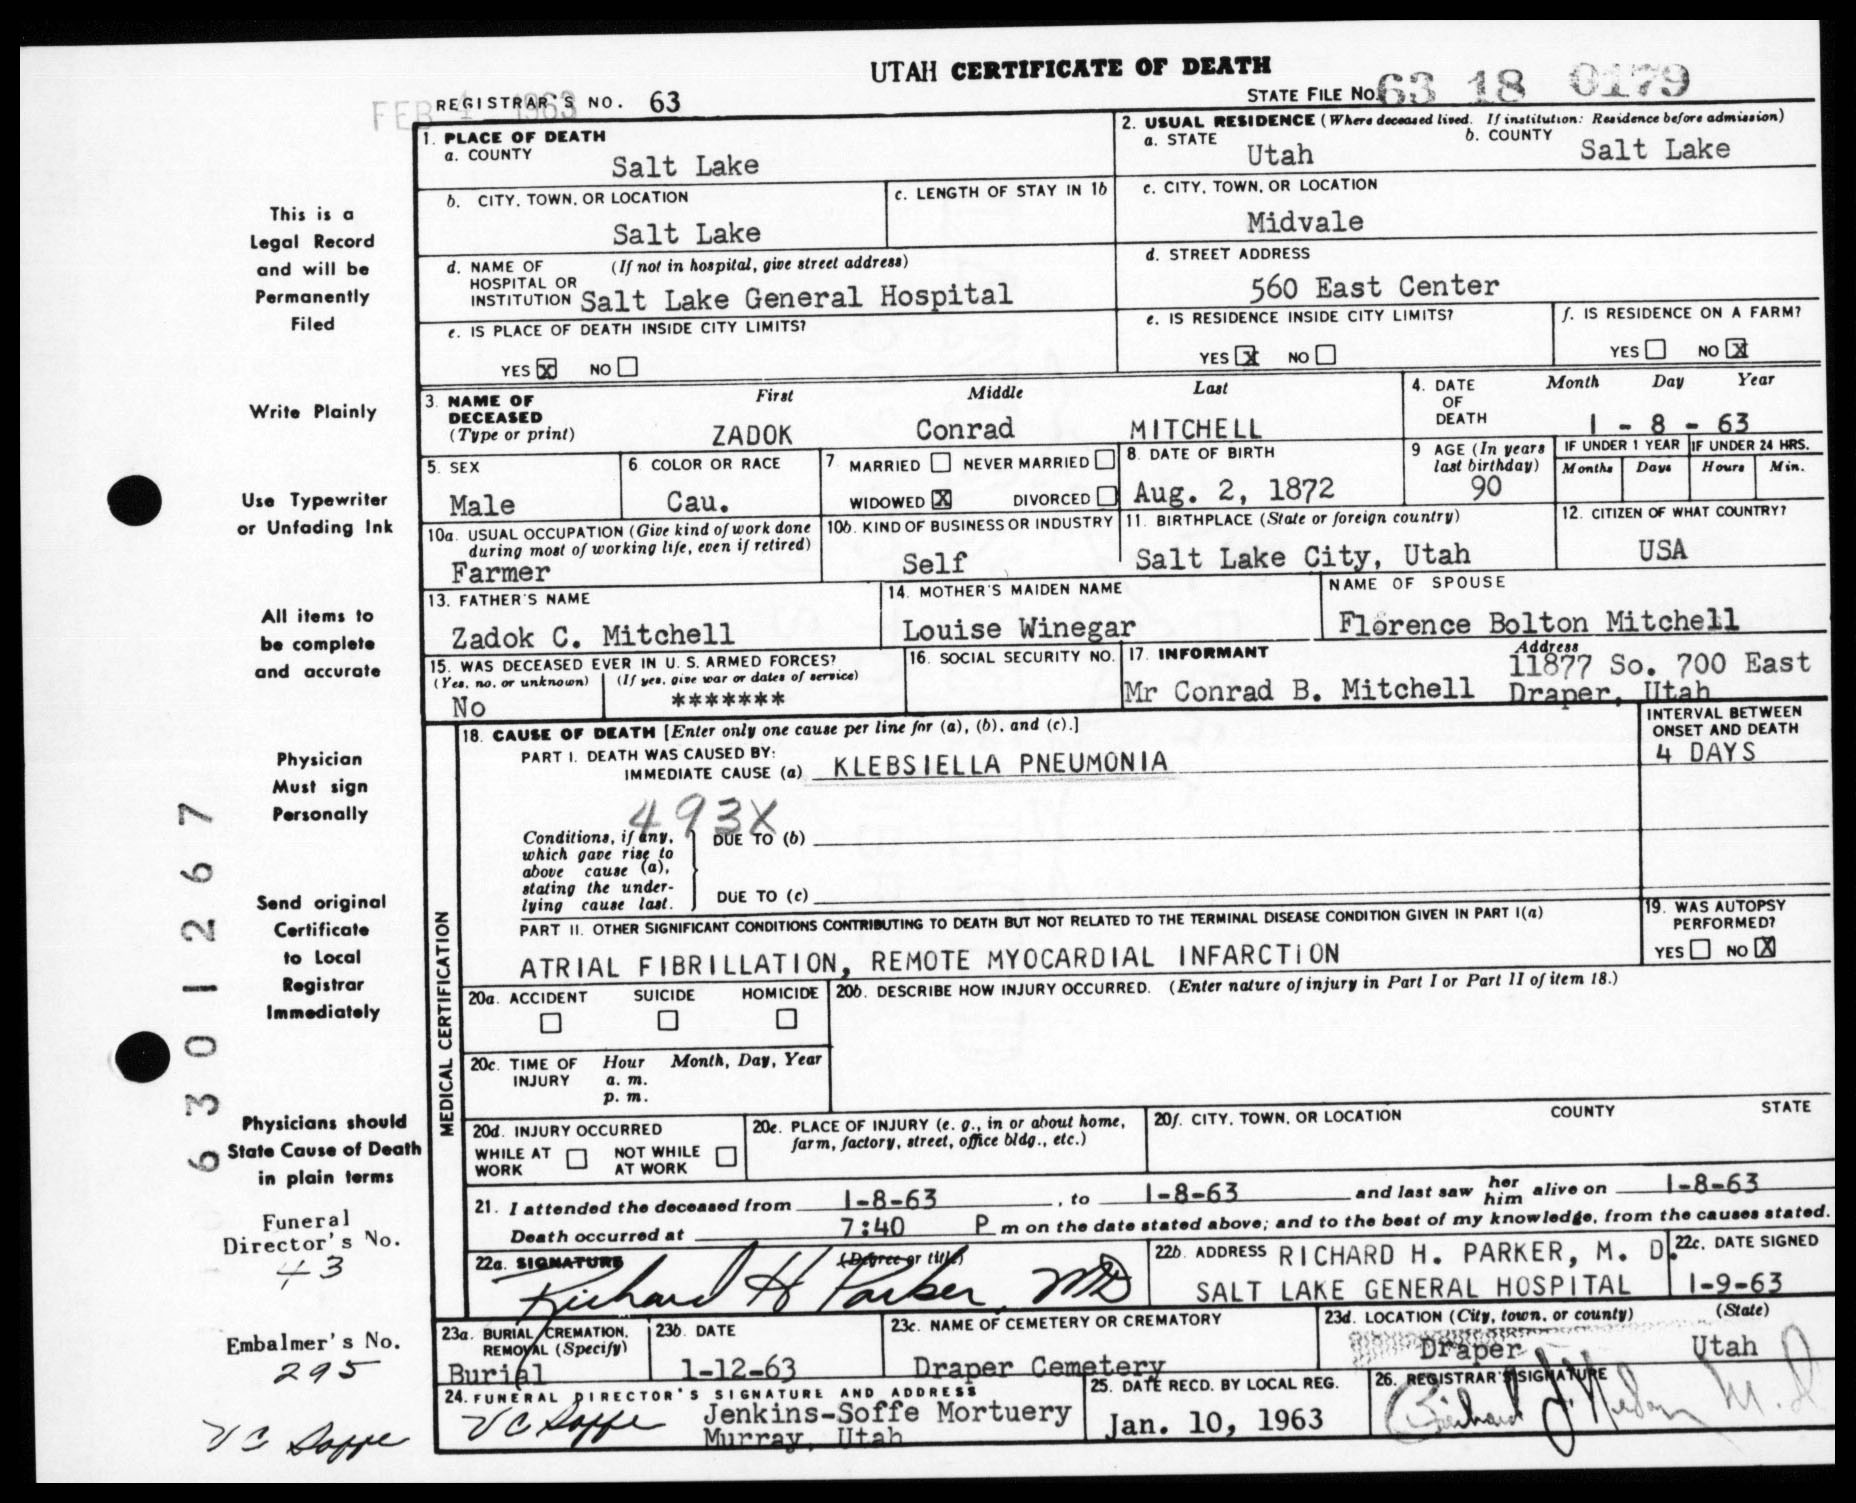 UTAH CERTIFICATE OF DEATH
FEB 1 1963
REGISTRAR'S NO. 63
STATE FILE NO. 63 18 0179
1. PLACE OF DEATH
a. COUNTY
Salt Lake
2. USUAL RESIDENCE (Where deceased lived. If institution: Residence before admission)
a. STATE
Utah
b. COUNTY
Salt Lake
b. CITY, TOWN, OR LOCATION
Salt Lake
c. LENGTH OF STAY IN 1b
c. CITY, TOWN, OR LOCATION
Midvale
d. NAME OF (If not in hospital, give street address)
HOSPITAL OR
INSTITUTION Salt Lake General Hospital
d. STREET ADDRESS
560 East Center
e. IS PLACE OF DEATH INSIDE CITY LIMITS?
YES X NO
e. IS RESIDENCE INSIDE CITY LIMITS?
YES X NO
f. IS RESIDENCE ON A FARM?
YES NO X
3. NAME OF
DECEASED
(Type or print)
First Middle Last
ZADOK Conrad MITCHELL
4. DATE
OF
DEATH
Month Day Year
1 - 8 - 63
5. SEX
Male
6. COLOR OR RACE
Cau.
7. MARRIED NEVER MARRIED
WIDOWED X DIVORCED
8. DATE OF BIRTH
Aug. 2, 1872
9 AGE (In years
last birthday)
90
IF UNDER 1 YEAR
Months Days
IF UNDER 24 HRS.
Hours Min.
10a. USUAL OCCUPATION (Give kind of work done
during most of working life, even if retired)
Farmer
10b. KIND OF BUSINESS OR INDUSTRY
Self
11. BIRTHPLACE (State or foreign country)
Salt Lake City, Utah
12. CITIZEN OF WHAT COUNTRY?
USA
13. FATHER'S NAME
Zadok C. Mitchell
14. MOTHER'S MAIDEN NAME
Louise Winegar
NAME OF SPOUSE
Florence Bolton Mitchell
15. WAS DECEASED EVER IN U. S. ARMED FORCES?
(Yes, no, or unknown) (If yes, give war or dates of service)
No *******
16. SOCIAL SECURITY NO.
17. INFORMANT
Mr Conrad B. Mitchell
Address
11877 So. 700 East
Draper, Utah
MEDICAL CERTIFICATION
18. CAUSE OF DEATH [Enter only one cause per line for (a), (b), and (c).]
PART I. DEATH WAS CAUSED BY:
IMMEDIATE CAUSE (a) KLEBSIELLA PNEUMONIA
INTERVAL BETWEEN
ONSET AND DEATH
4 DAYS
493X
Conditions, if any,
which gave rise to
above cause (a),
stating the under-
lying cause last.
DUE TO (b)
DUE TO (c)
PART II. OTHER SIGNIFICANT CONDITIONS CONTRIBUTING TO DEATH BUT NOT RELATED TO THE TERMINAL DISEASE CONDITION GIVEN IN PART I(a)
ATRIAL FIBRILLATION, REMOTE MYOCARDIAL INFARCTION
19. WAS AUTOPSY
PERFORMED?
YES NO X
20a. ACCIDENT SUICIDE HOMICIDE
20b. DESCRIBE HOW INJURY OCCURRED. (Enter nature of injury in Part I or Part II of item 18.)
20c. TIME OF
INJURY
Hour Month, Day, Year
a. m.
p. m.
20d. INJURY OCCURRED
WHILE AT
WORK
NOT WHILE
AT WORK
20e. PLACE OF INJURY (e. g., in or about home,
farm, factory, street, office bldg., etc.)
20f. CITY, TOWN, OR LOCATION COUNTY STATE
21. I attended the deceased from 1-8-63, to 1-8-63 and last saw her him alive on 1-8-63
Death occurred at 7:40 P m on the date stated above; and to the best of my knowledge, from the causes stated.
22a. SIGNATURE (Degree or title)
Richard H Parker, MD
22b. ADDRESS RICHARD H. PARKER, M. D.
SALT LAKE GENERAL HOSPITAL
22c. DATE SIGNED
1-9-63
23a. BURIAL, CREMATION,
REMOVAL (Specify)
Burial
23b. DATE
1-12-63
23c. NAME OF CEMETERY OR CREMATORY
Draper Cemetery
23d. LOCATION (City, town, or county) (State)
Draper Utah
24. FUNERAL DIRECTOR'S SIGNATURE AND ADDRESS
V C Soffe Jenkins-Soffe Mortuery
Murray, Utah
25. DATE RECD. BY LOCAL REG.
Jan. 10, 1963
26. REGISTRAR'S SIGNATURE
This is a
Legal Record
and will be
Permanently
Filed
Write Plainly
Use Typewriter
or Unfading Ink
All items to
be complete
and accurate
Physician
Must sign
Personally
Send original
Certificate
to Local
Registrar
Immediately
Physicians should
State Cause of Death
in plain terms
Funeral
Director's No.
43
Embalmer's No.
295
V C Soffe
6301267